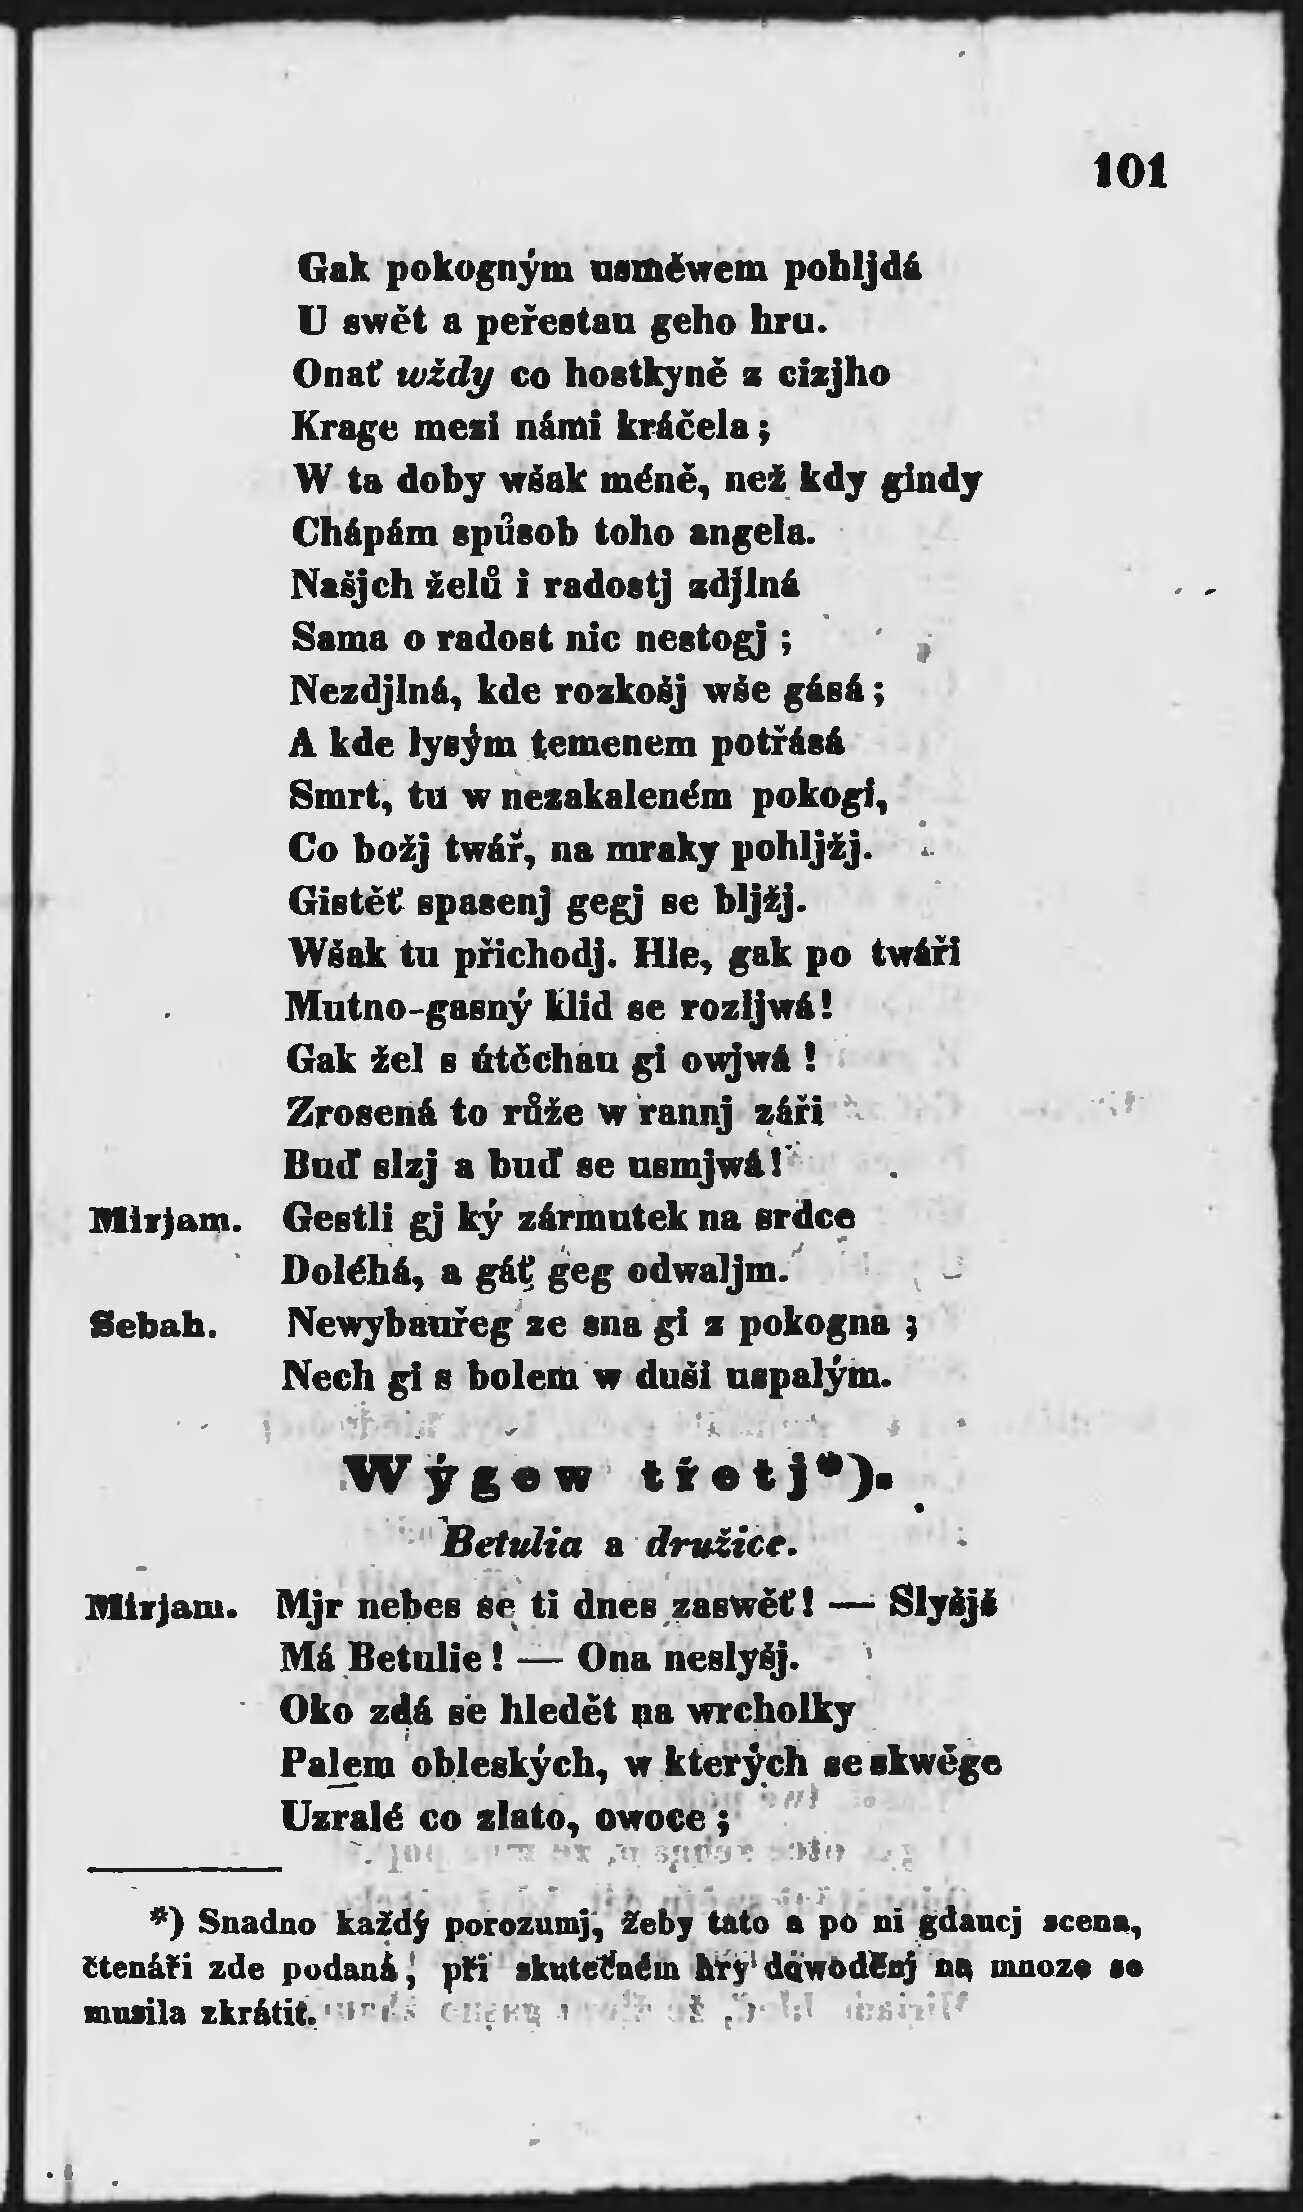 101
Gak pokogným usměwem pohljdá
U swět a peřestau geho hru.
Onať wždy co hostkyně z cizjho
Krage mezi námi kráčela;
W ta doby wšak méně, než kdy gindy
Chápám spůsob toho angela.
Našjch želů i radostj zdjlná
Sama o radost nic nestogj;
Nezdjlná, kde rozkošj wše gásá;
A kde lysým temenem potřásá
Smrt, tu w nezakaleném pokogi,
Co božj twář, na mraky pohljžj.
Gistěť spasenj gegj se bljžj.
Wšak tu přichodj. Hle, gak po twáři
Mutno-gasný klid se rozljwá!
Gak žel s útěchau gi owjwá!
Zrosená to růže w rannj záři
Buď slzj a buď se usmjwá!
Mirjam. Gestli gj ký zármutek na srdce
Doléhá, a gáť geg odwaljm.
Sebah. Newybauřeg ze sna gi z pokogna;
Nech gi s bolem w duši uspalým.
Wýgew třetj*).
Betulia a družice.
Mirjam. Mjr nebes se ti dnes zaswěť! — Slyšjš
Má Betulie! — Ona neslyšj.
Oko zdá se hledět na wrcholky
Palem obleských, w kterých se skwěge
Uzralé co zlato, owoce;
*) Snadno každý porozumj, žeby tato a po ni gdaucj scena,
čtenáři zde podaná, při skutečném hry dowoděnj na mnoze se
musila zkrátit.